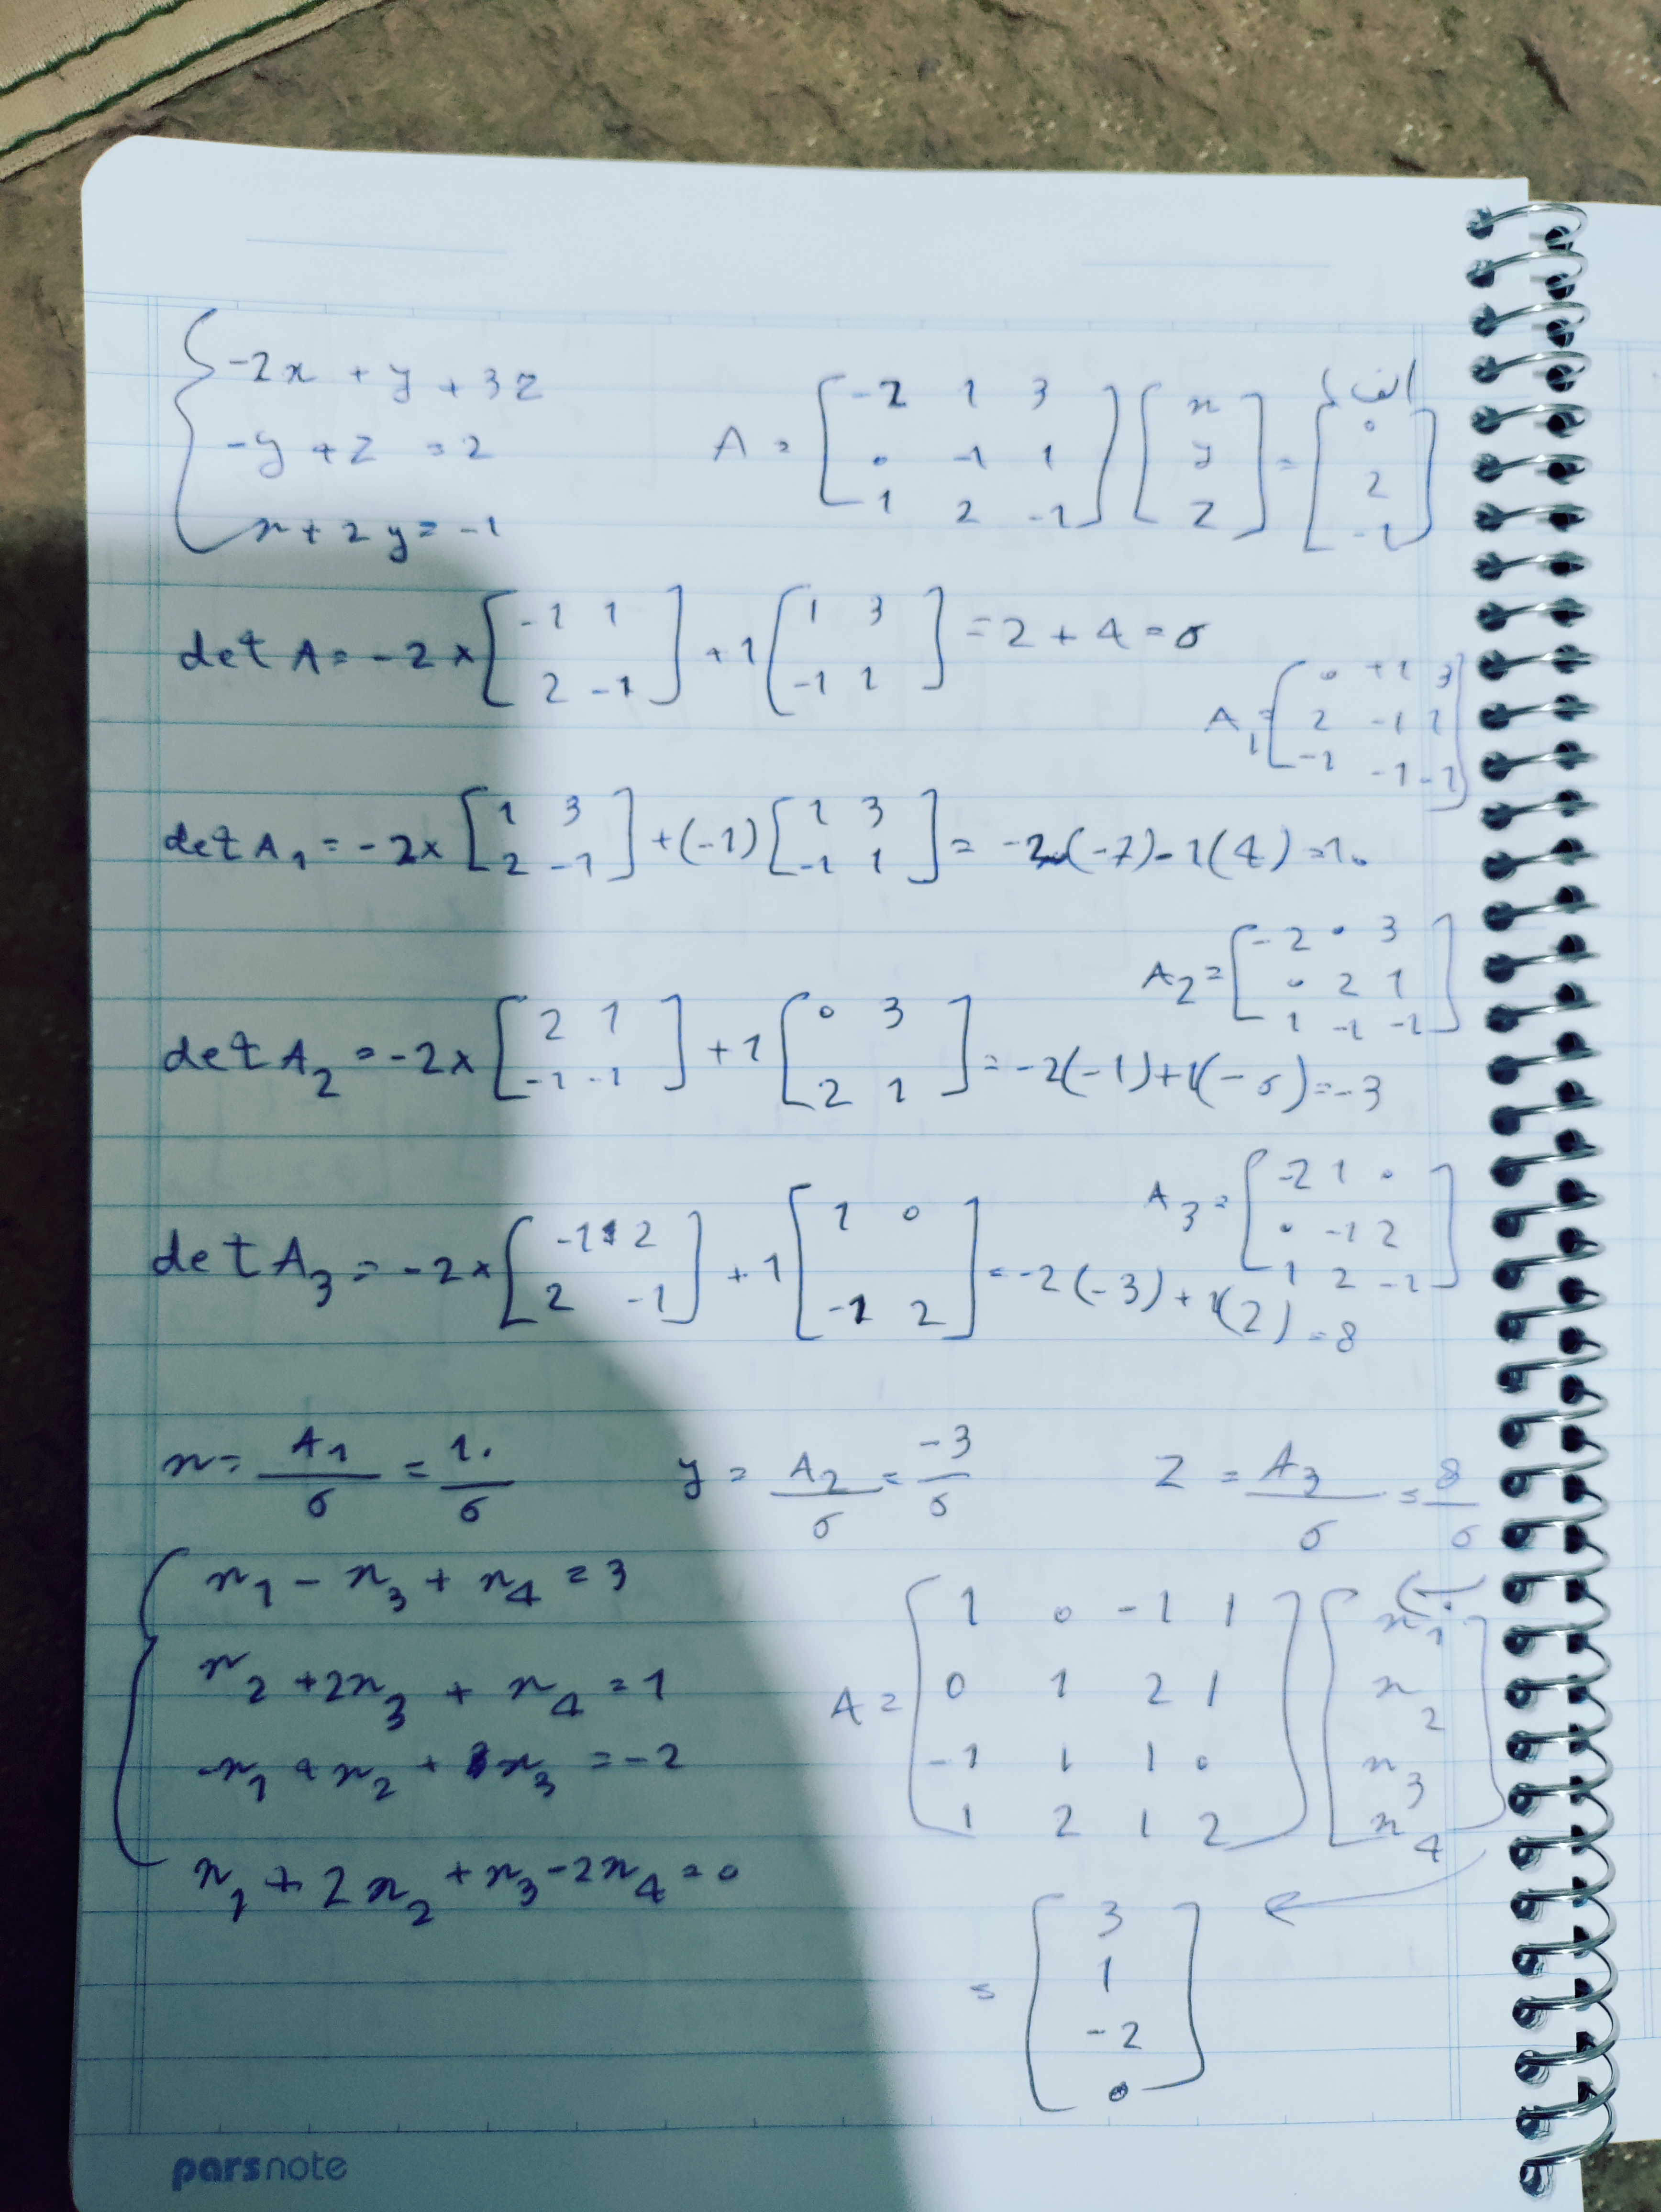 الف)
{ -2x + y + 3z
-y + z = 2
x + 2y = -1
A = [ -2 1 3 ; 0 -1 1 ; 1 2 -1 ] [ x ; y ; z ] = [ 0 ; 2 ; -1 ]
det A = -2 × [ -1 1 ; 2 -1 ] + 1 [ 1 3 ; -1 1 ] = 2 + 4 = 6
A1 = [ 0 +1 3 ; 2 -1 1 ; -1 -1 -1 ]
det A1 = -2 × [ 1 3 ; 2 -1 ] + (-1) [ 1 3 ; -1 1 ] = -2(-7) - 1(4) = 10
A2 = [ -2 0 3 ; 0 2 1 ; 1 -1 -1 ]
det A2 = -2 × [ 2 1 ; -1 -1 ] + 1 [ 0 3 ; 2 1 ] = -2(-1) + 1(-6) = -3
A3 = [ -2 1 0 ; 0 -1 2 ; 1 2 -1 ]
det A3 = -2 × [ -1 2 ; 2 -1 ] + 1 [ 1 0 ; -1 2 ] = -2(-3) + 1(2) = 8
x = A1/6 = 10/6 y = A2/6 = -3/6 z = A3/6 = 8/6
ب)
{ x1 - x3 + x4 = 3
x2 + 2x3 + x4 = 1
-x1 + x2 + x3 = -2
x1 + 2x2 + x3 - 2x4 = 0
A = [ 1 0 -1 1 ; 0 1 2 1 ; -1 1 1 0 ; 1 2 1 2 ] [ x1 ; x2 ; x3 ; x4 ]
= [ 3 ; 1 ; -2 ; 0 ]
parsnote